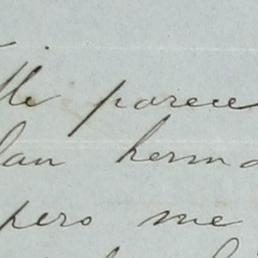 Me parece
lan hermo
pero me